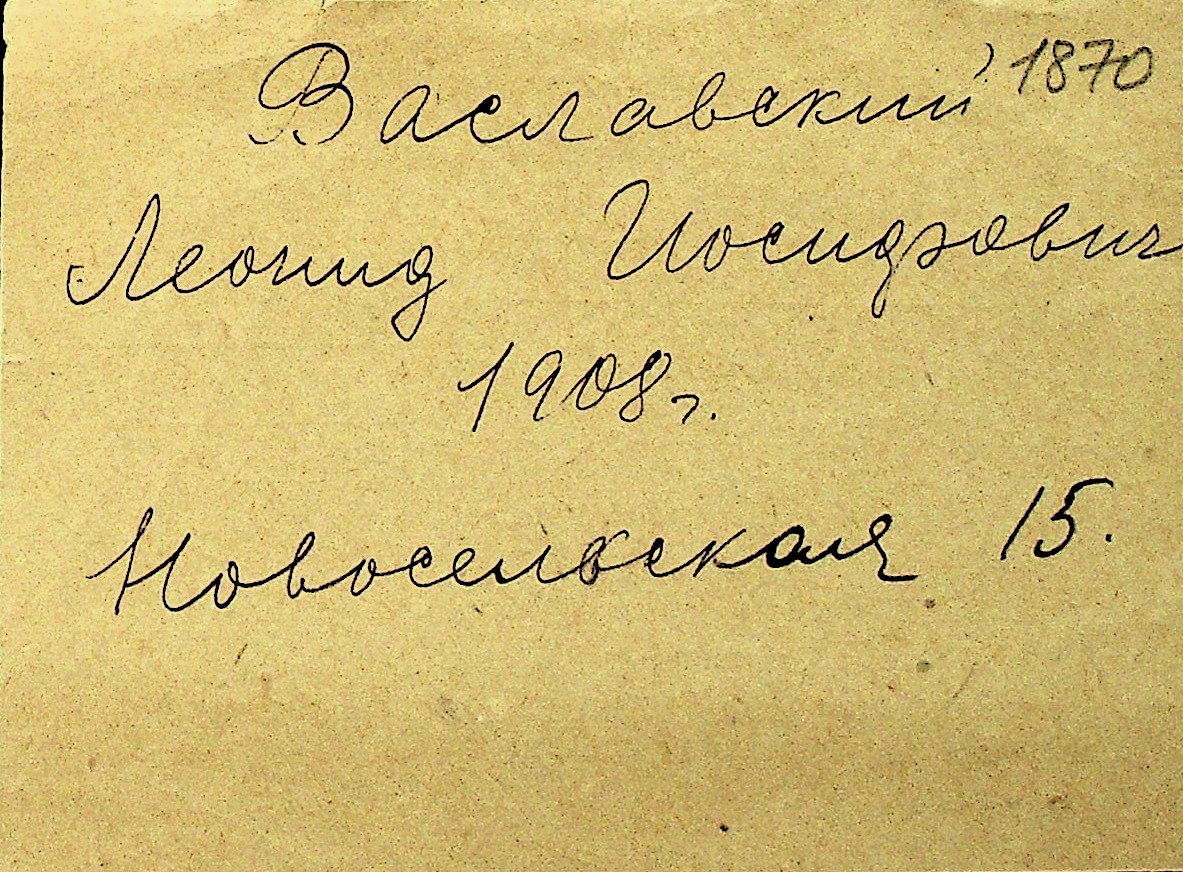 Ваславский 1870
Леонид Иосифович
1908г.
Новосельская 15.